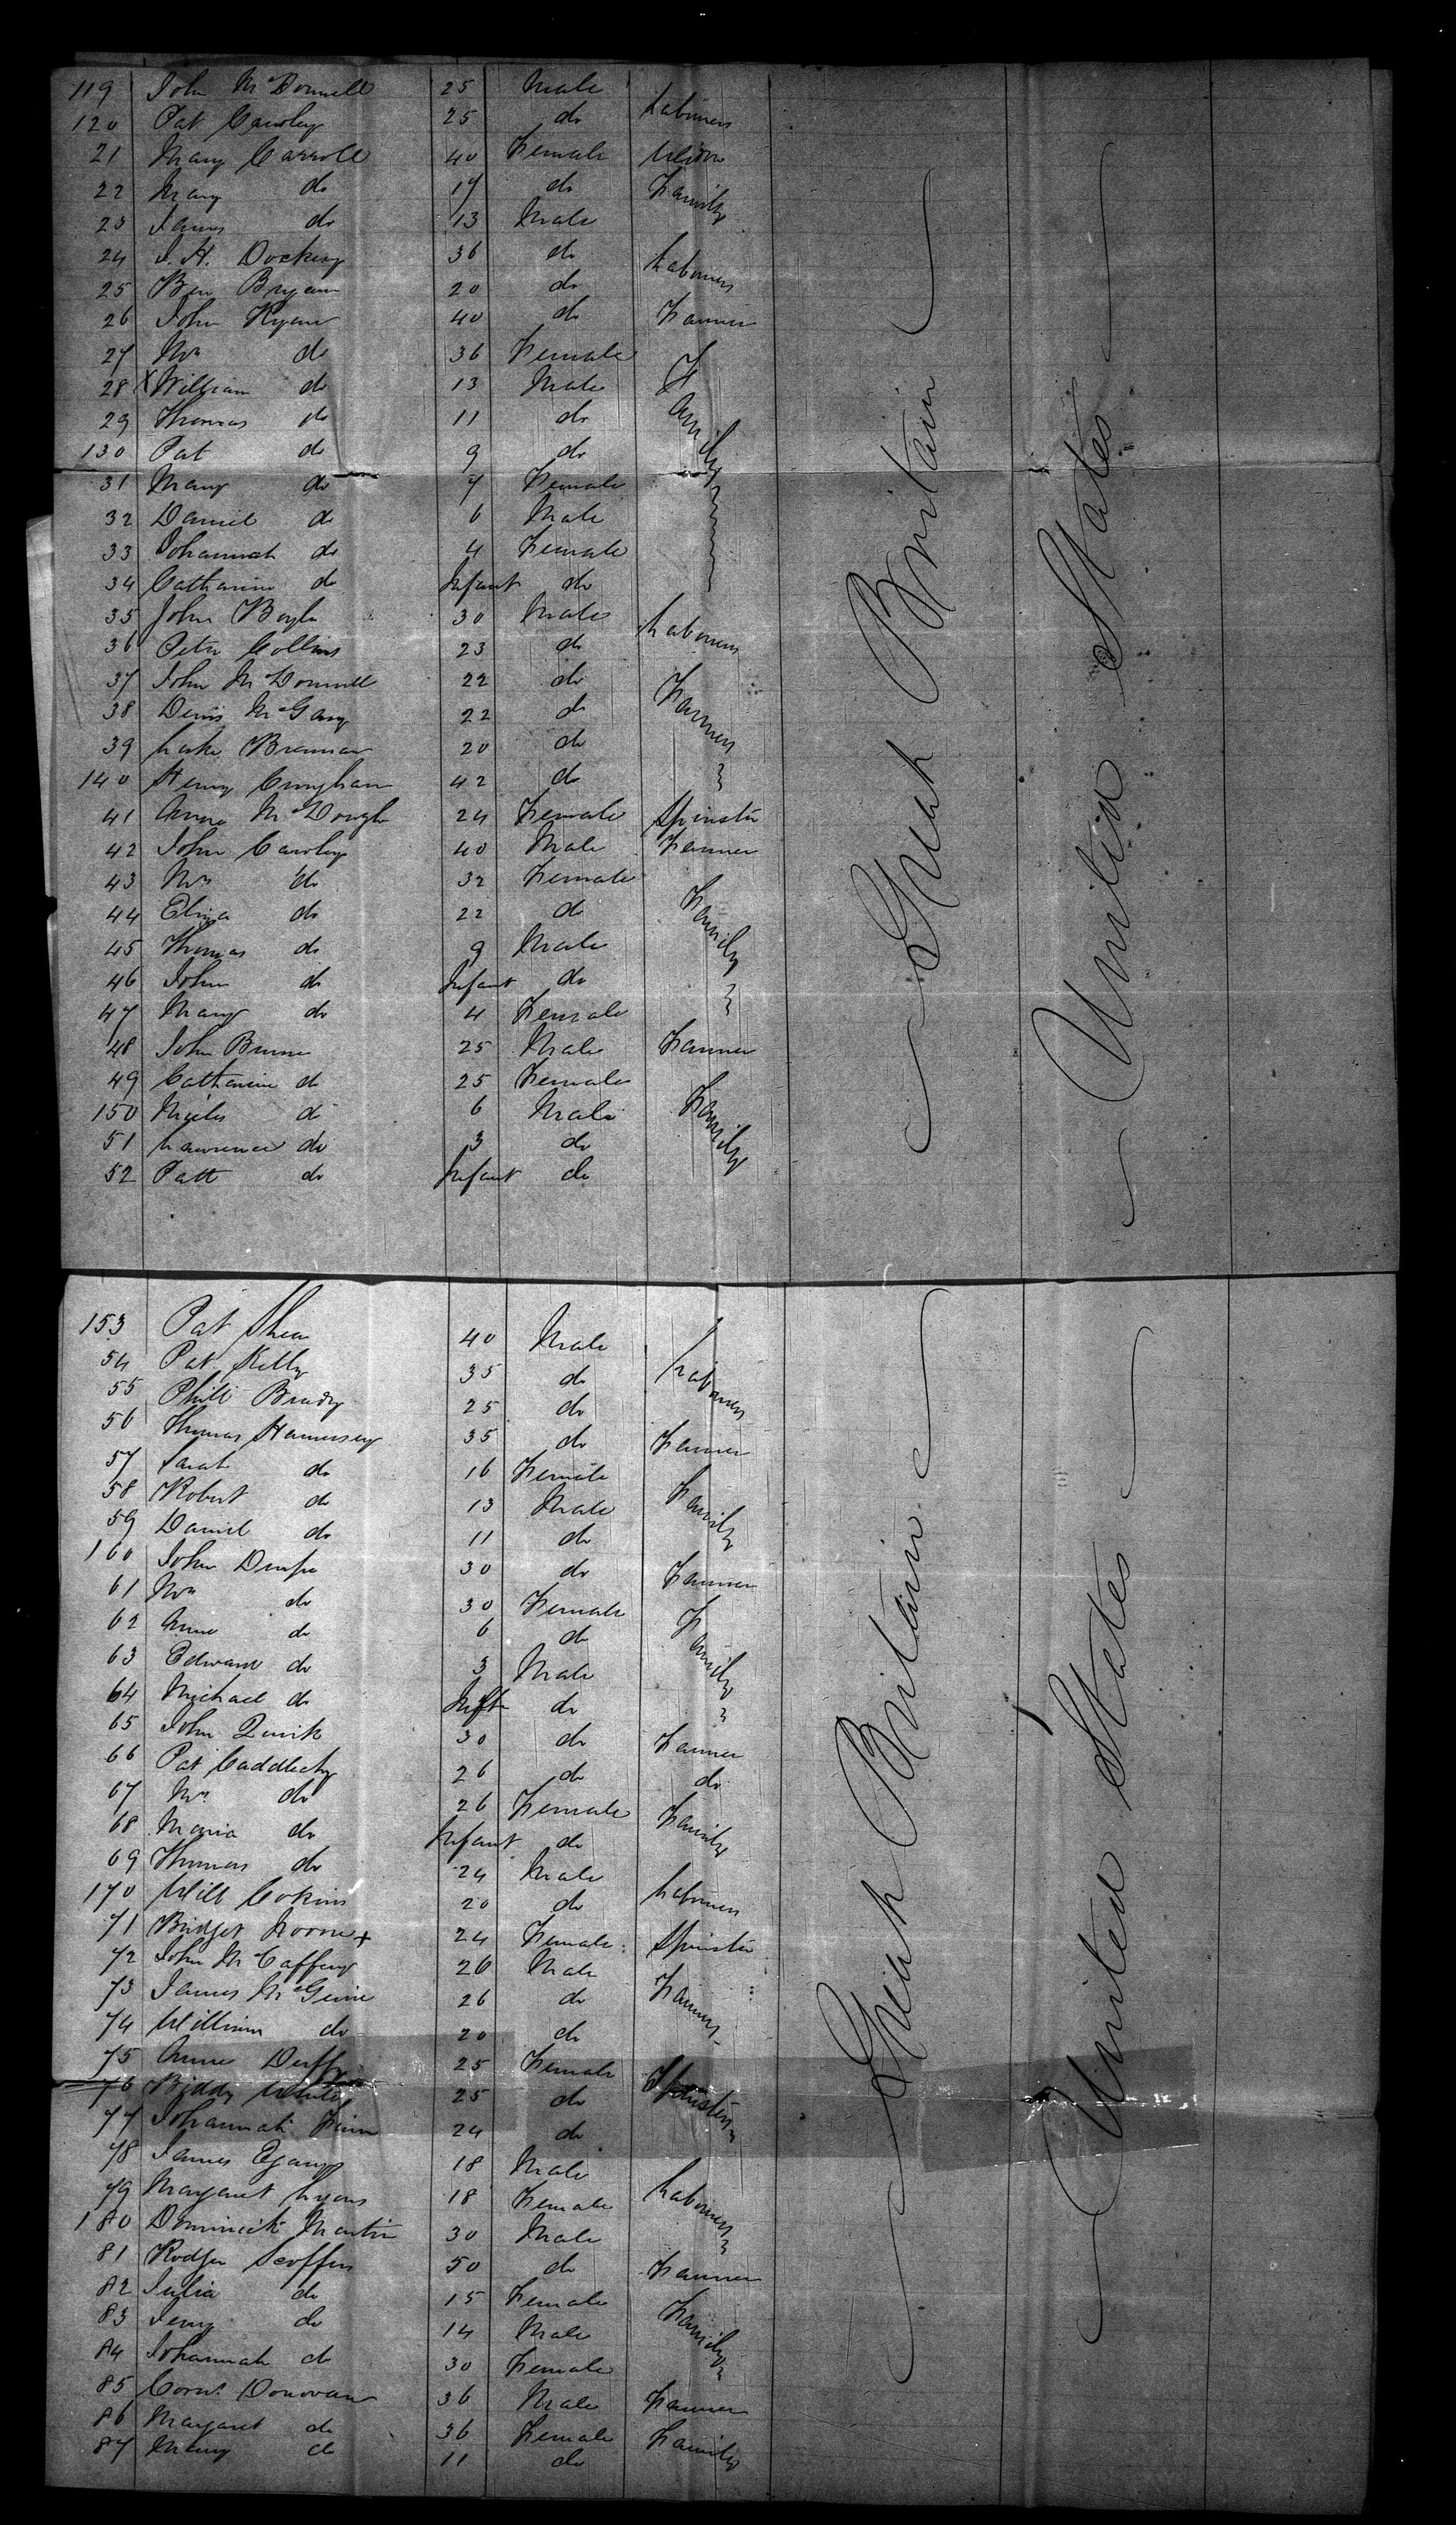 119 John McDonnell 25 Male
120 Pat Cawley 25 do Labourers
21 Mary Carroll 40 Female Widow
22 Mary do 17 do Family
23 James do 13 Male
24 J. H. Dockery 36 do Labourers
25 Ben Bryan 20 do
26 John Ryan 40 do Farmer
27 Mrs do 36 Female Family
28 X William do 13 Male
29 Thomas do 11 do
130 Pat do 9 do
31 Mary do 7 Female
32 Daniel do 6 Male
33 Johannah do 4 Female
34 Catharine do Infant do
35 John Boyle 30 Male Labourers
36 Peter Collins 23 do
37 John McDonnell 22 do Farmers
38 Denis McGary 22 do
39 Luke Brennan 20 do
140 Henry 42 do
41 Anne 24 Female Spinster
42 John Cawley 40 Male Farmer
43 Mrs do 32 Female Family
44 Eliza do 22 do
45 Thomas do 9 Male
46 John do Infant do
47 Mary do 4 Female
48 John Burne 25 Male Farmer
49 Catharine do 25 Female Family
150 Miles do 6 Male
51 Lawrence do 3 do
52 Patt do Infant do
Great Britain
United States
153 Pat Shea 40 Male Labourers
54 Pat Kelly 35 do
55 Phill Brady 25 do
56 Thomas Hennersey 35 do Farmer
57 Sarah do 16 Female Family
58 Robert do 13 Male
59 Daniel do 11 do
160 John 30 do Farmer
61 Mrs do 30 Female Family
62 Anne do 6 do
63 Edward do 3 Male
64 Michael do Inft do
65 John Quirk 30 do Farmer
66 Pat 26 do do
67 Mrs do 26 Female Family
68 Maria do Infant do
69 Thomas do 24 Male Labourers
170 Will 20 do
71 Bridget 24 Female Spinster
72 John McCaffery 26 Male Farmers
73 James 26 do
74 William do 20 do
75 Anne Duffy 25 Female Spinsters
76 Biddy White 25 do
77 Johannah Finn 24 do
78 James Egan 18 Male Labourers
79 Margaret Lyons 18 Female
180 Dominick Martin 30 Male
81 Rodger 50 do Farmer
82 Julia do 15 Female Family
83 Jerry do 14 Male
84 Johannah do 30 Female
85 Corns. Donovan 36 Male Farmer
86 Margaret do 36 Female Family
87 Mary do 11 do
Great Britain
United States